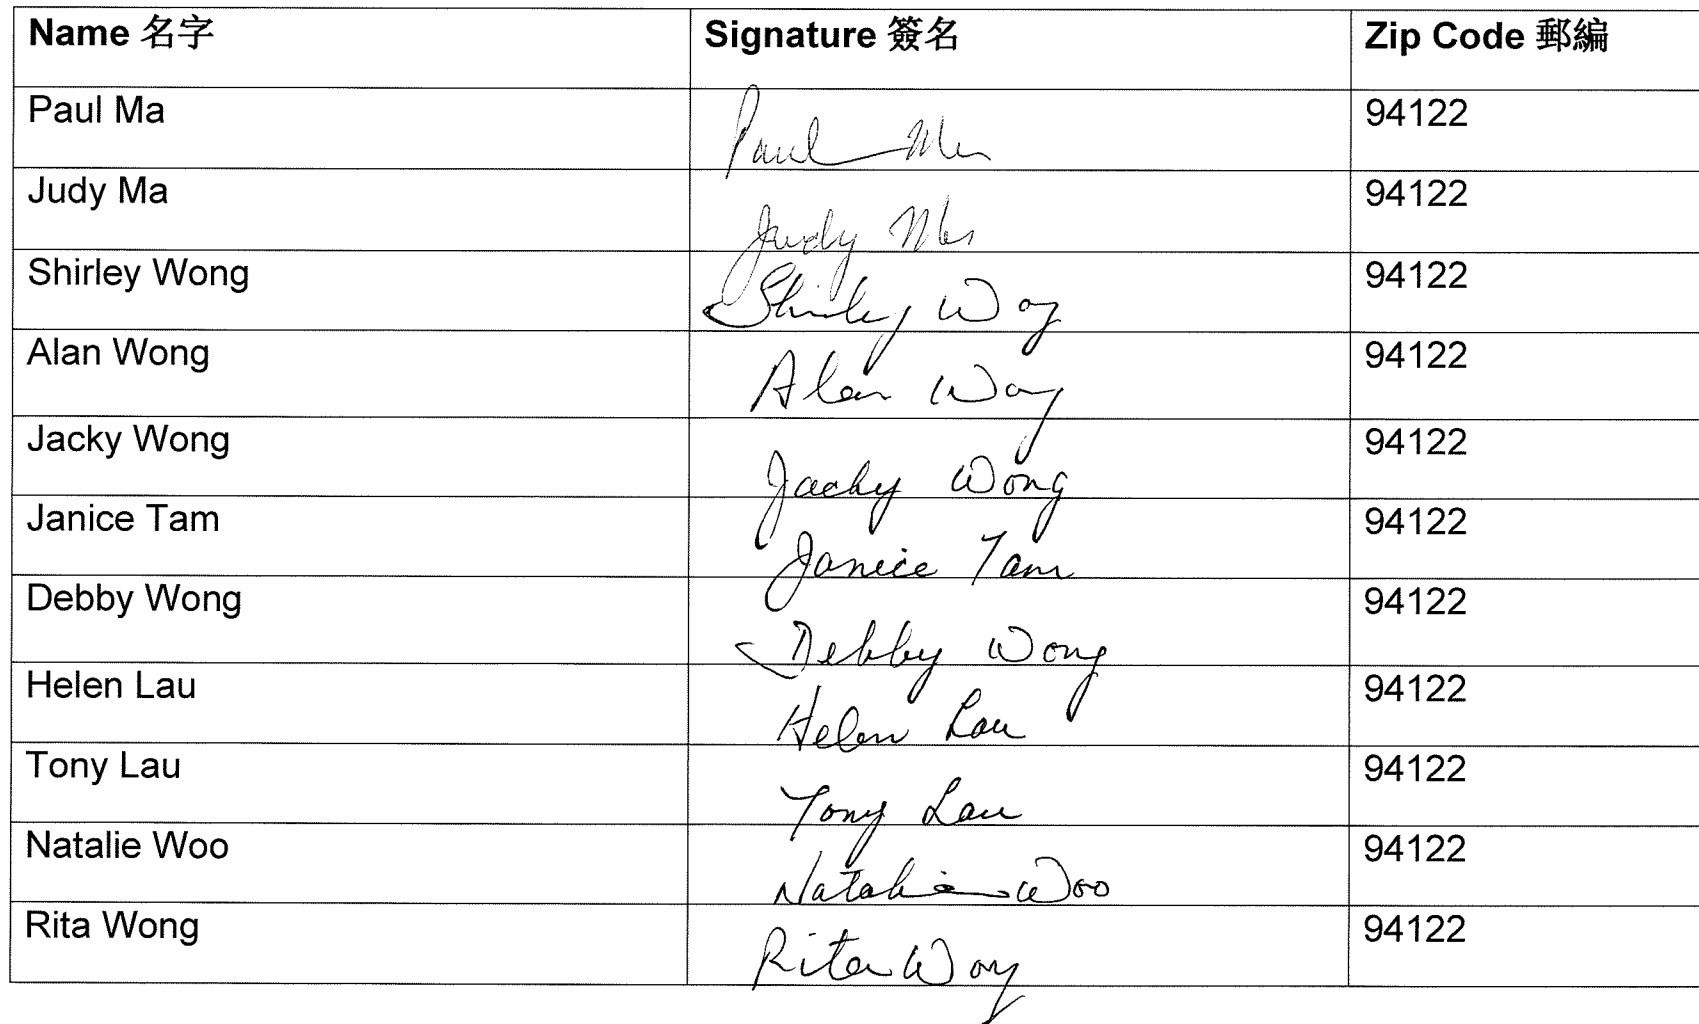 Name 名字 Signature 簽名 Zip Code 郵編
Paul Ma Paul Ma 94122
Judy Ma Judy Ma 94122
Shirley Wong Shirley Wong 94122
Alan Wong Alan Wong 94122
Jacky Wong Jacky Wong 94122
Janice Tam Janice Tam 94122
Debby Wong Debby Wong 94122
Helen Lau Helen Lau 94122
Tony Lau Tony Lau 94122
Natalie Woo Natalie Woo 94122
Rita Wong Rita Wong 94122